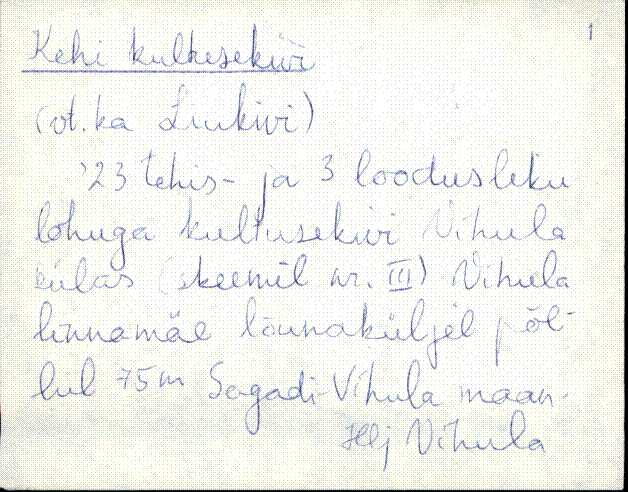 1
Kehi kultusekivi
(vt. ka Liukivi)
23 tehis- ja 3 loodusliku
lohuga kultusekivi Vihula
külas (skeemil nr. III) Vihula
linnamäe lõunaküljel põl-
lul 75m Sagadi-Vihula maan-
Hlj Vihula